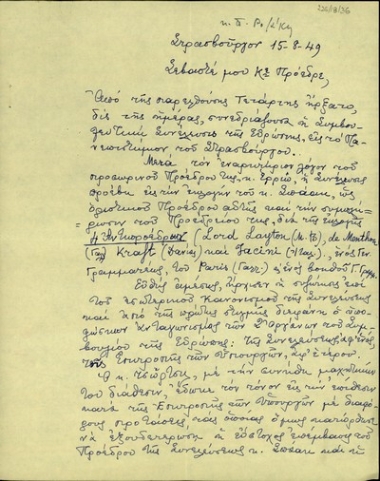 κ. Π. Ρ.
Στρασβούργον 15-8-49
Σεβαστέ μου Κε Πρόεδρε,
Από της παρελθούσης Τετάρτης ήρξατο,
δις της ημέρας, συνεδριάζουσα η Συμβου-
λευτική Συνέλευσις της Ευρώπης, εις το Πα-
νεπιστήμιον του Στρασβούργου.
Μετά τον εναρκτήριον λόγον του
προσωρινού Προέδρου της κ. Ερριώ, η Συνέλευσις
προέβη εις την εκλογήν του κ. Σπάακ, ως
οριστικού Προέδρου αυτής και την συμπλή-
ρωσιν του Προεδρείου της, δια της εκλογής
4 Αντιπροέδρων (Lord Layton (Μ. Βρ), de Menthon
(Γαλ) Kraft (Δανία) και Jacini (Ιταλ.), ενός Γεν.
Γραμματέως, του Paris (Γαλ.) και ενός βοηθού Γ. Γρ.
Ευθύς αμέσως, ήρχισεν η συζήτησις επί
του εσωτερικού Κανονισμού της Συνελεύσεως
και από της πρώτης στιγμής διεφάνη ο υπο-
βώσκων ανταγωνισμός των δύο οργάνων του Συμ-
βουλίου της Ευρώπης: της Συνελεύσεως αφ' ενός,
της Επιτροπής των Υπουργών, αφ' ετέρου.
Ο κ. Τσώρτσιλ, με την συνήθη μαχητικήν
του διάθεσιν, έδωσε τον τόνον εις την επίθεσιν
κατά της Επιτροπής των Υπουργών με διαφό-
ρους προτάσεις, τας οποίας όμως κατώρθωσε
να εξουδετερώση η εύστοχος επέμβασις του
Προέδρου της Συνελεύσεως κ. Σπάακ και η